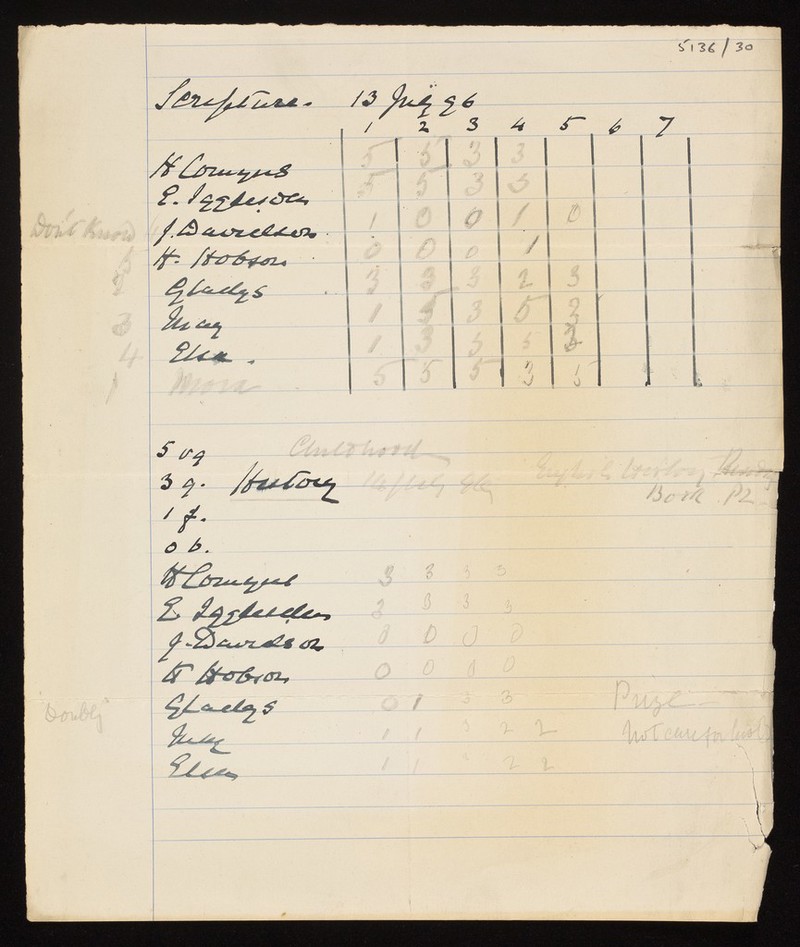 5136/30
Scripture. 13 July 96
1 2 3 4 5 6 7
H Comyns 5 5 3 3
E. Iggleden 5 5 3 5
Don't Know J. Davidson 1 0 0 1 0
H. Hobson 0 0 0 1
Gladys 3 3 3 2 3
3 May 1 3 5
4 Elsa. 1 3 5 5
Mora 5 5 5 3 5
5 vg Childhood
3 g. History English History Reading
Book P2
1 f.
0 b.
H Comyns 3 3 3 3
E Iggleden 3 3 3 3
J. Davidson 0 0 0 0
H Hobson 0 0 0 0
Gladys 0 1 3 3 Prize
Doubly
May 1 1 3 2 2 Not care for
Elsa 1 1 2 2